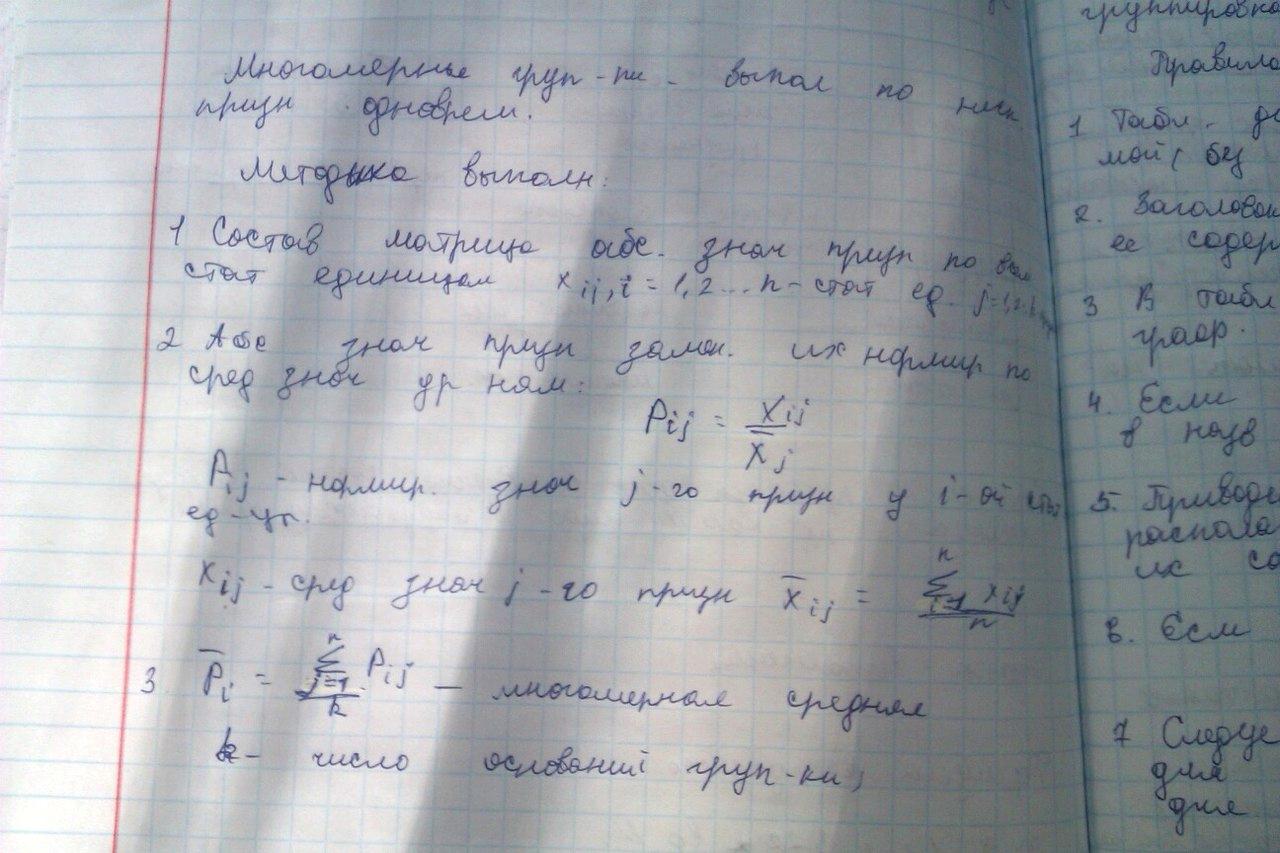 Многомерные груп-ки - выпол по неск.
призн. одноврем.
Методика выполн:
1 Состав матрица абс. знач призн по всем
стат единицам x ij, i = 1,2...n - стат ед. j=1,2..k
2 Абс знач призн замен. их нормир по
сред знач ур ням:
Pij = xij / x̄j
Pij - нормир. знач j-го призн у i-ой стат
ед-цы.
xij - сред знач j-го призн x̄ij = Σ i=1 n xij / n
3 P̄i = Σ j=1 n Pij / k — многомерная средняя
k - число оснований груп-ки,
группировка
Правила
1 Табл.
мой( без
2. Заголовок
ее содер
3 В табл
граф.
4. Если
в назв
5. Приводе
распола
их со
6. Если
7 Следуе
для
для